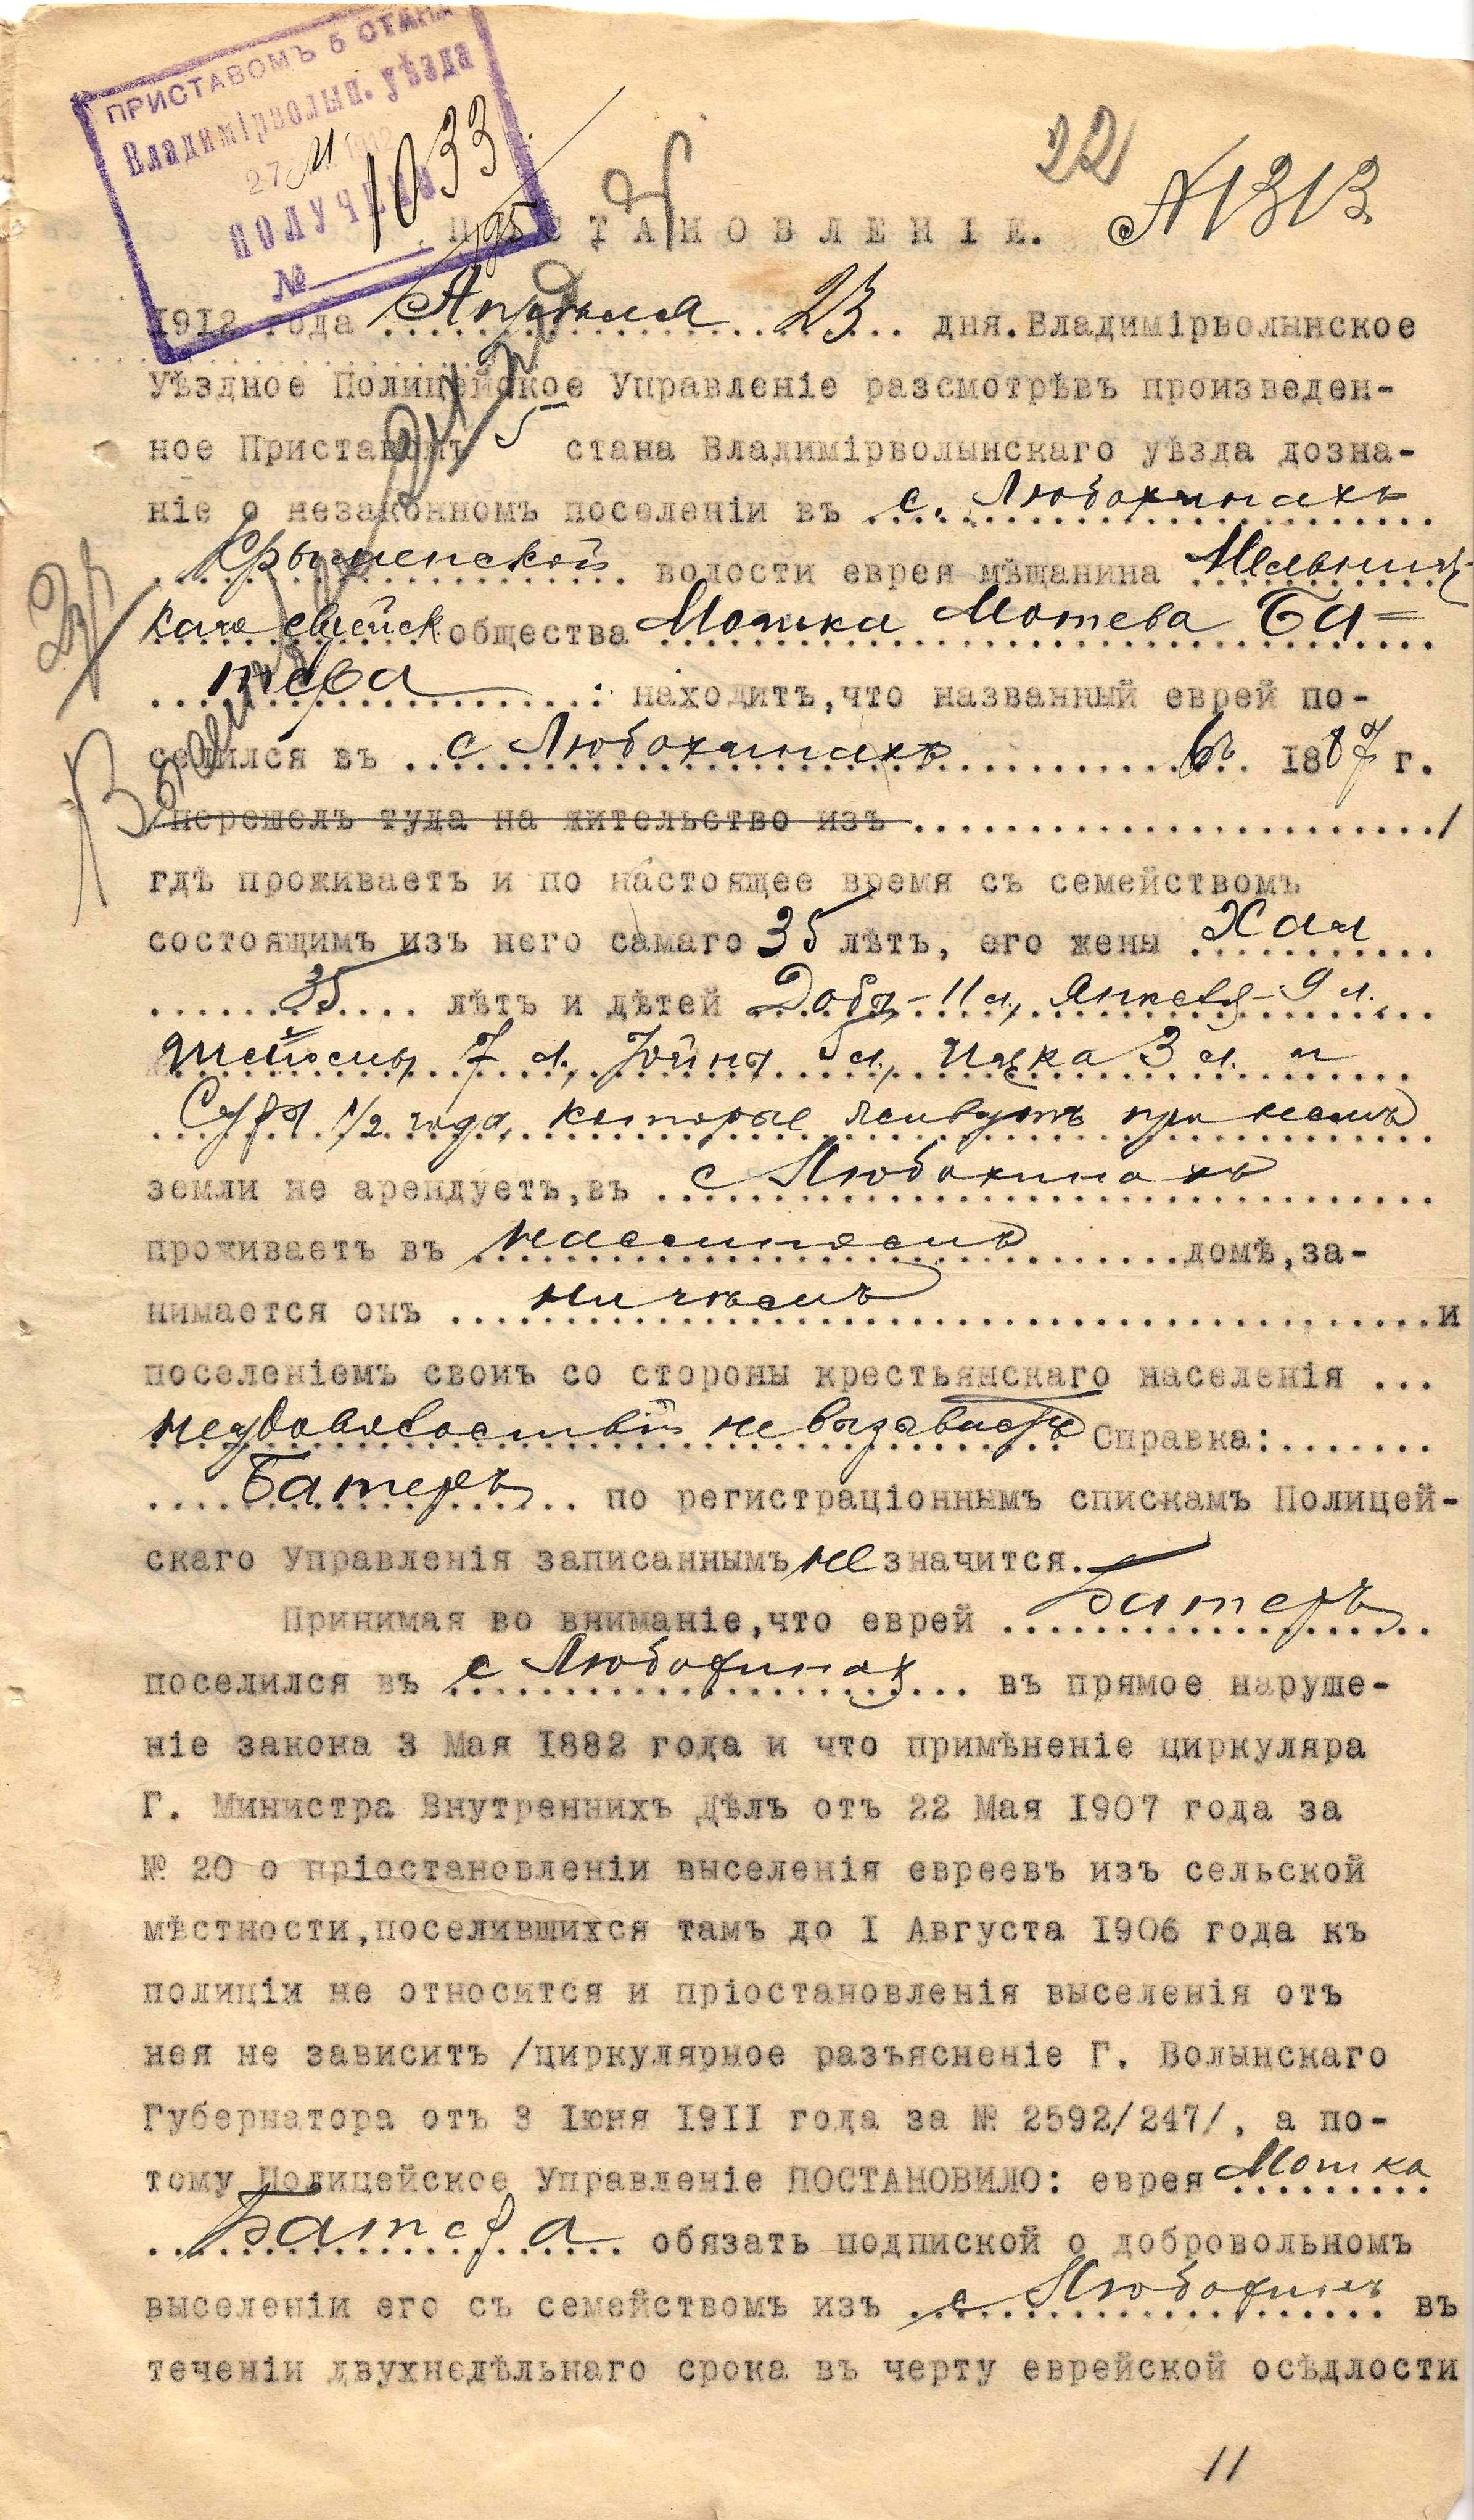 ПРИСТАВОМЪ 5 СТАНА
Владимірволын. уѣзда
27 1912
ПОЛУЧЕНО
№ 1033
22
№ 1313
ПОСТАНОВЛЕНІЕ.
1912 года Апрѣля 23 дня. Владимірволынское
Уѣздное Полицейское Управленіе разсмотрѣвъ произведен-
ное Приставомъ 5 стана Владимірволынскаго уѣзда дозна-
ніе о незаконномъ поселеніи въ с. Любохинахъ
Крымнской волости еврея мѣщанина Мельниц-
каго еврейск общества Мошка Мотева Ба-
тера: находитъ, что названный еврей по-
селился въ с Любохинахъ въ 1887 г.
/перешелъ туда на жительство изъ ........../
гдѣ проживаетъ и по настоящее время съ семействомъ
состоящимъ изъ него самаго 35 лѣтъ, его жены Хаи
35 лѣтъ и дѣтей Добы - 11 л., Янкеля - 9 л.,
7 л., 5 л., Ицка 3 л. и
Суры 1/2 года, которые живутъ при немъ
земли не арендуетъ, въ с Любохинахъ
проживаетъ въ наемномъ домѣ, за-
нимается онъ ничѣмъ и
поселеніемъ своиъ со стороны крестьянскаго населенія ...
неудовольствій не вызываетъ Справка:.......
Батеръ по регистраціоннымъ спискамъ Полицей-
скаго Управленія записаннымъ не значится.
Принимая во вниманіе, что еврей Батеръ
поселился въ с Любохинах въ прямое наруше-
ніе закона 3 Мая 1882 года и что примѣненіе циркуляра
Г. Министра Внутреннихъ Дѣлъ отъ 22 Мая 1907 года за
№ 20 о пріостановленіи выселенія евреевъ изъ сельской
мѣстности, поселившихся тамъ до I Августа 1906 года къ
полиціи не относится и пріостановленія выселенія отъ
нея не зависитъ /циркулярное разъясненіе Г. Волынскаго
Губернатора отъ 3 Іюня 1911 года за № 2592/247/, а по-
тому Полицейское Управленіе ПОСТАНОВИЛО: еврея Мошка
Батера обязать подпиской о добровольномъ
выселеніи его съ семействомъ изъ с Любохинъ въ
теченіи двухнедѣльнаго срока въ черту еврейской осѣдлости
11